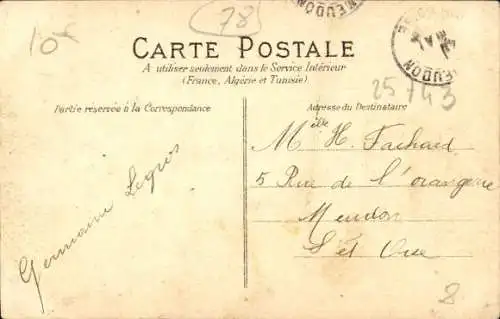 10F
78
MEUDON
CARTE POSTALE
A utiliser seulement dans le Service Intérieur
(France, Algérie et Tunisie)
MEUDON
25743
Partie réservée à la Correspondance
Adresse du Destinataire
Germaine Legros
Mlle H. Fachard
5 Rue de l'orangerie
Meudon
S et Oise
8